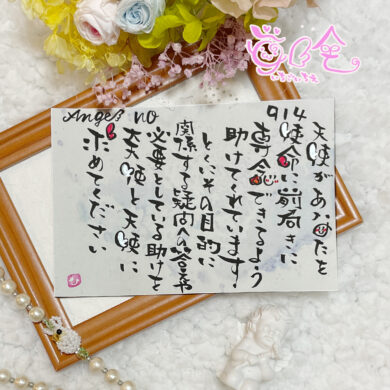 Angel NO
914
天使があなたを
使命に前向きに
専念できるよう
助けてくれています
とくにその目的に
関係する疑問への答や
必要としている助けを
大天使と天使に
求めてください